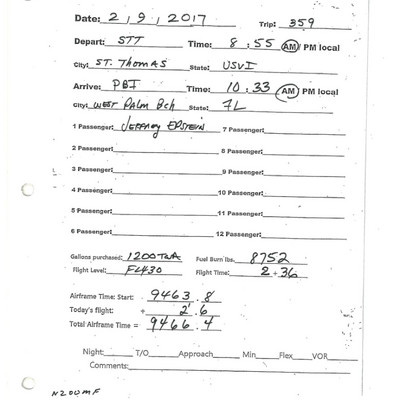 Date: 2, 9, 2017 Trip: 359
Depart: STT Time: 8:55 AM/PM local
City: ST. Thomas State: USVI
Arrive: PBI Time: 10:33 AM/PM local
City: WEST Palm Bch State: FL
1 Passenger: Jeffrey EPSTEIN 7 Passenger:
2 Passenger: 8 Passenger:
3 Passenger: 9 Passenger:
4 Passenger: 10 Passenger:
5 Passenger: 11 Passenger:
6 Passenger: 12 Passenger:
Gallons purchased: 1200 Fuel Burn lbs. 8752
Flight Level: FL430 Flight Time: 2+36
Airframe Time: Start: 9463.8
Today's flight: + 2.6
Total Airframe Time = 9466.4
Night: T/O Approach Min Flex VOR
Comments:
N200MF